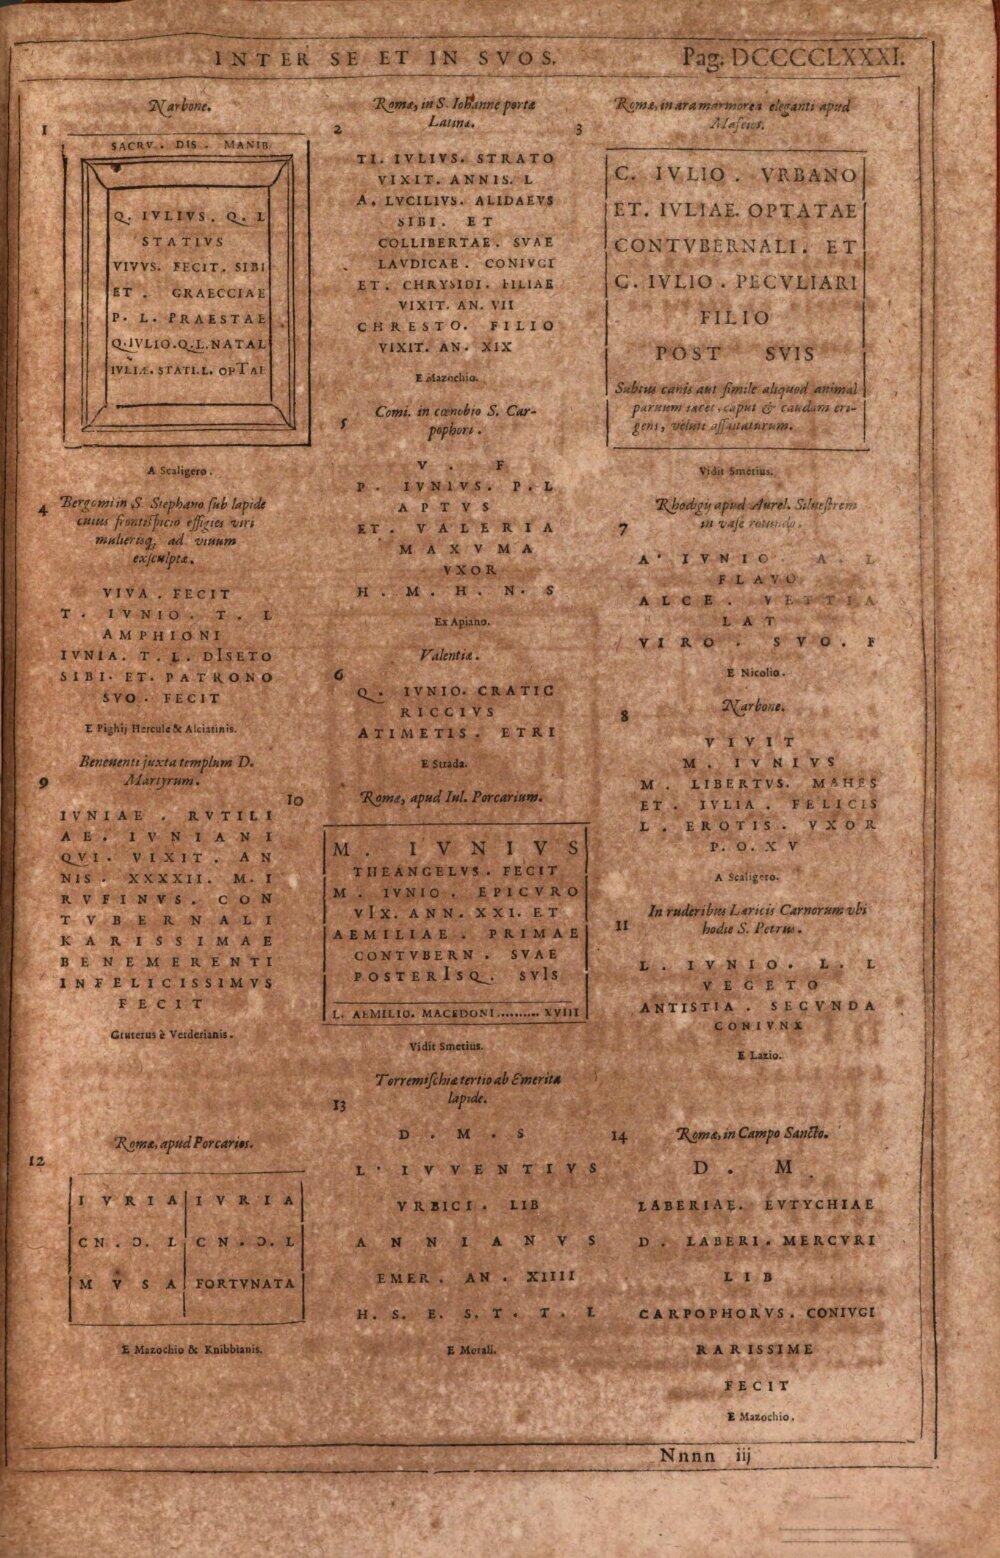 INTER SE ET IN SVOS.
Pag. DCCCCCLXXXI.
1
Narbone.
SACRV. DIS. MANIB.
Q. IVLIVS. Q. L
STATIVS
VIVVS. FECIT. SIBI
ET. GRAECCIAE
P. L. PRAESTAE
Q. IVLIO. Q. L. NATAL
IVLIÆ. STATI. L. OPTAE
A Scaligero.
2
Romæ, in S. Iohanne portæ
Latinæ.
TI. IVLIVS. STRATO
VIXIT. ANNIS. L
A. LVCILIVS. ALIDAEVS
SIBI. ET
COLLIBERTAE. SVAE
LAVDICAE. CONIVGI
ET. CHRYSIDI. FILIAE
VIXIT. AN. VII
CHRESTO. FILIO
VIXIT. AN. XIX
E Mazochio.
3
Romæ, in ara marmorea eleganti apud
Mafeios.
C. IVLIO. VRBANO
ET. IVLIAE. OPTATAE
CONTVBERNALI. ET
C. IVLIO. PECVLIARI
FILIO
POST SVIS
Subtus canis aut simile aliquod animal
paruum iacet, caput & caudam eri-
gens, veluti assultaturum.
Vidit Smetius.
4
Bergomi in S. Stephano sub lapide
cuius frontispicio effigies viri
mulierisq; ad viuum
exsculptæ.
VIVA. FECIT
T. IVNIO. T. L
AMPHIONI
IVNIA. T. L. DISETO
SIBI. ET. PATRONO
SVO. FECIT
E Pighij Hercule & Alciatinis.
5
Comi. in cœnobio S. Car-
pophori.
V. F
P. IVNIVS. P. L
APTVS
ET. VALERIA
MAXVMA
VXOR
H. M. H. N. S
Ex Apiano.
6
Valentiæ.
Q. IVNIO. CRATIC
RICCIVS
ATIMETIS. ETRI
E Strada.
7
Rhodigij apud Aurel. Siluestrem
in vase rotundo.
A. IVNIO. A. L
FLAVO
ALCE. VETTIA
LAT
VIRO. SVO. F
E Nicolio.
8
Narbone.
VIVIT
M. IVNIVS
M. LIBERTVS. MAHES
ET. IVLIA. FELICIS
L. EROTIS. VXOR
P. O. XV
A Scaligero.
9
Beneuenti juxta templum D.
Martyrum.
IVNIAE. RVTILI
AE. IVNIANI
QVI. VIXIT. AN
NIS. XXXXII. M. I
RVFINVS. CON
TVBERNALI
KARISSIMAE
BENEMERENTI
INFELICISSIMVS
FECIT
Gruterus è Verderianis.
10
Romæ, apud Iul. Porcarium.
M. IVNIVS
THEANGELVS. FECIT
M. IVNIO. EPICVRO
VIX. ANN. XXI. ET
AEMILIAE. PRIMAE
CONTVBERN. SVAE
POSTERISQ. SVIS
L. AEMILIO. MACEDONI.......... XVIII
Vidit Smetius.
11
In ruderibus Laricis Carnorum vbi
hodie S. Petrus.
L. IVNIO. L. L
VEGETO
ANTISTIA. SECVNDA
CONIVNX
E Lazio.
12
Romæ, apud Porcarios.
IVRIA IVRIA
CN. Ɔ. L CN. Ɔ. L
MVSA FORTVNATA
E Mazochio & Knibbianis.
13
Torremischia tertio ab Emerita
lapide.
D. M. S
L. IVVENTIVS
VRBICI. LIB
ANNIANVS
EMER. AN. XIIII
H. S. E. S. T. T. L
E Morali.
14
Romæ, in Campo Sancto.
D. M
LABERIAE. EVTYCHIAE
D. LABERI. MERCVRI
LIB
CARPOPHORVS. CONIVGI
RARISSIME
FECIT
E Mazochio.
Nnnn iij